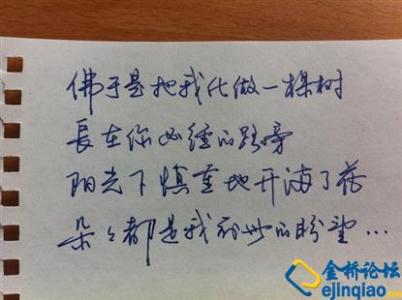 佛于是把我化做一棵树
長在你必经的路旁
阳光下慎重地开满了花
朵々都是我前世的盼望...
金桥论坛
ejinqiao.com